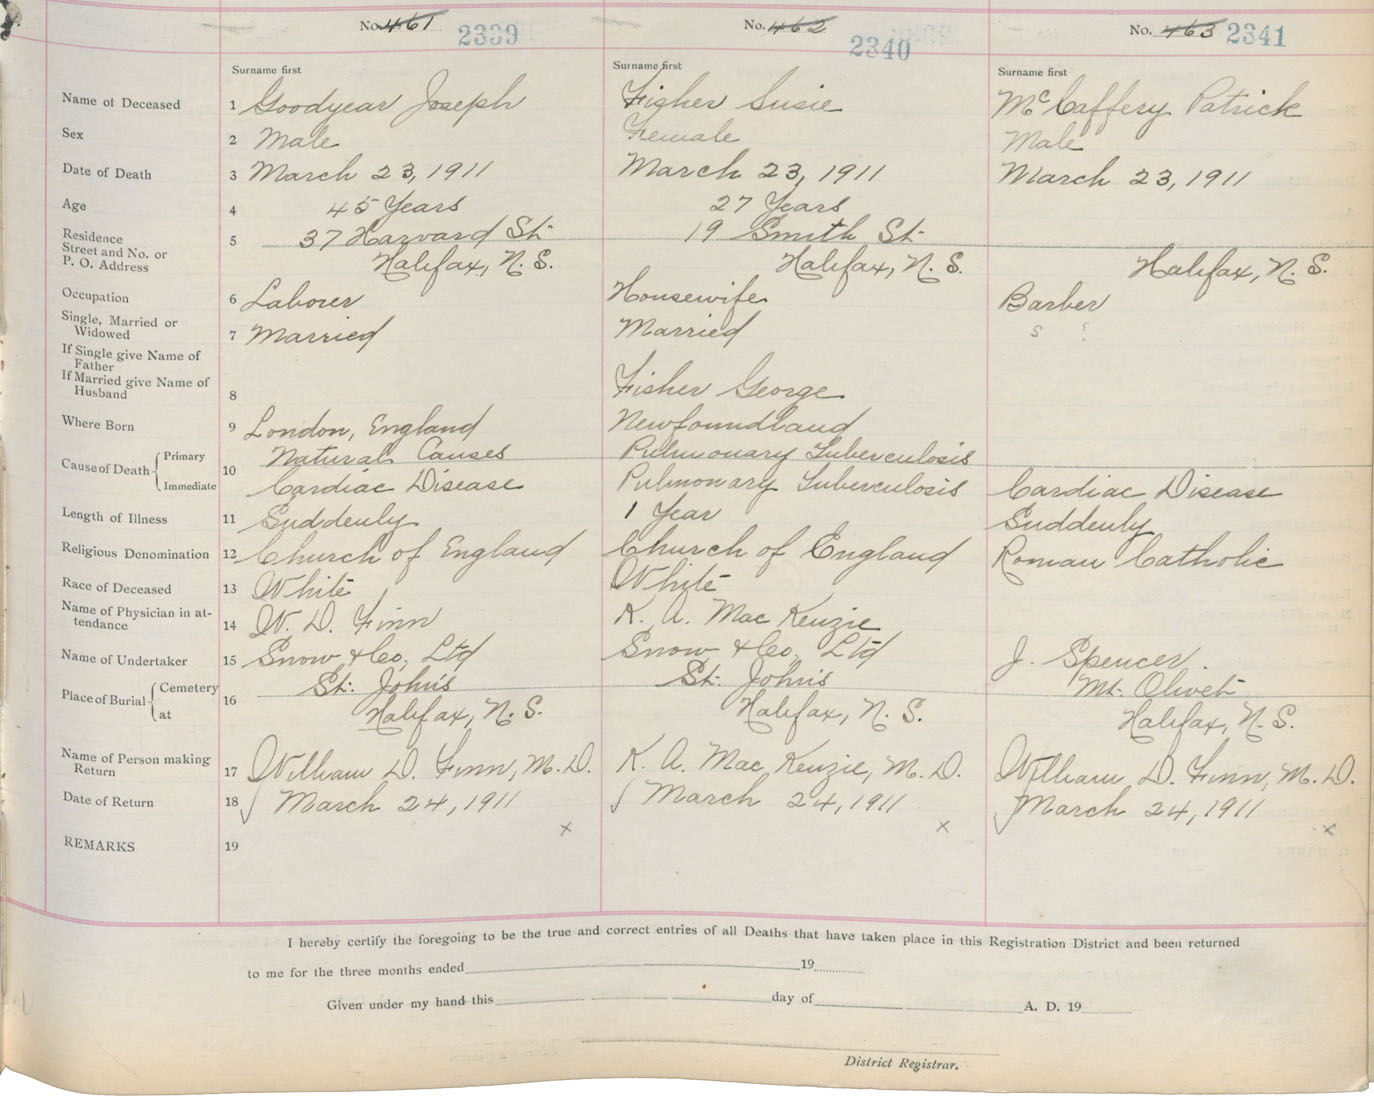 No. 461 2339 No. 462 2340 No. 463 2341
Surname first Surname first Surname first
Name of Deceased 1 Goodyear Joseph Fisher Susie McCaffery Patrick
Sex 2 Male Female Male
Date of Death 3 March 23, 1911 March 23, 1911 March 23, 1911
Age 4 45 Years 27 Years
Residence 5 37 Harvard St. 19 Smith St.
Street and No. or
P. O. Address Halifax, N. S. Halifax, N. S. Halifax, N. S.
Occupation 6 Laborer Housewife Barber
Single, Married or
Widowed 7 Married Married S ?
If Single give Name of
Father
If Married give Name of
Husband 8 Fisher George
Where Born 9 London, England Newfoundland
Cause of Death Primary 10 Natural Causes Pulmonary Tuberculosis
Immediate Cardiac Disease Pulmonary Tuberculosis Cardiac Disease
Length of Illness 11 Suddenly 1 Year Suddenly
Religious Denomination 12 Church of England Church of England Roman Catholic
Race of Deceased 13 White White
Name of Physician in at-
tendance 14 W. D. Finn K. A. MacKenzie
Name of Undertaker 15 Snow & Co., Ltd Snow & Co., Ltd J. Spencer.
Place of Burial Cemetery 16 St. John's St. John's Mt. Olivet
at Halifax, N. S. Halifax, N. S. Halifax, N. S.
Name of Person making
Return 17 William D. Finn, M. D. K. A. MacKenzie, M. D. William D. Finn, M. D.
Date of Return 18 March 24, 1911 March 24, 1911 March 24, 1911
x x x
REMARKS 19
I hereby certify the foregoing to be the true and correct entries of all Deaths that have taken place in this Registration District and been returned
to me for the three months ended 19
Given under my hand this day of A. D. 19
District Registrar.